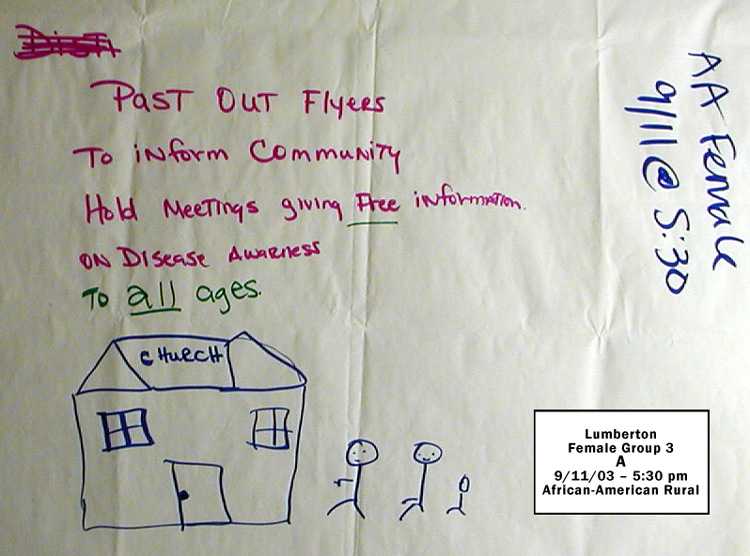 PAST OUT Flyers
To inform Community
Hold Meetings giving Free information.
ON Disease Awarness
To all ages.
CHURCH
AA Female
9/11 @ 5:30
Lumberton
Female Group 3
A
9/11/03 – 5:30 pm
African-American Rural